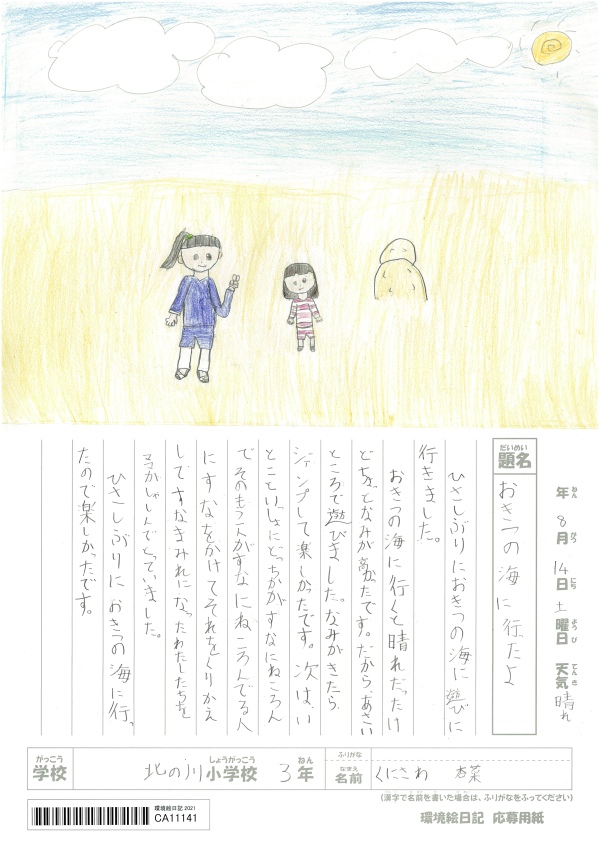 年 8月 14日 土曜日 天気 晴れ
ねん がつ にち ようび てんき
だいめい
題名 おきつの海に行たよ
ひさしぶりにおきつの海に遊びに
行きました。
おきつの海に行くと晴れだったけ
どちょとなみが高かたです。だからあさい
ところで遊びました。なみがきたら
ジャンプして楽しかったです。次は、い
とこといっしょにどっちかがすなにねころん
でそのもう一人がすなにねころんでる人
にすなをかけてそれをくりかえ
してすなまみれになったわたしたちを
ママがしゃしんでとっていました。
ひさしぶりにおきつの海に行っ
たので楽しかったです。
がっこう しょうがっこう ねん ふりがな
学校 北の川小学校 3年
なまえ
名前 くにさわ 杏菜
(漢字で名前を書いた場合は、ふりがなをふってください)
環境絵日記 2021
CA11141
環境絵日記 応募用紙